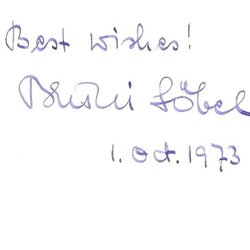 Best wishes!
Löbel
1. Oct. 1973